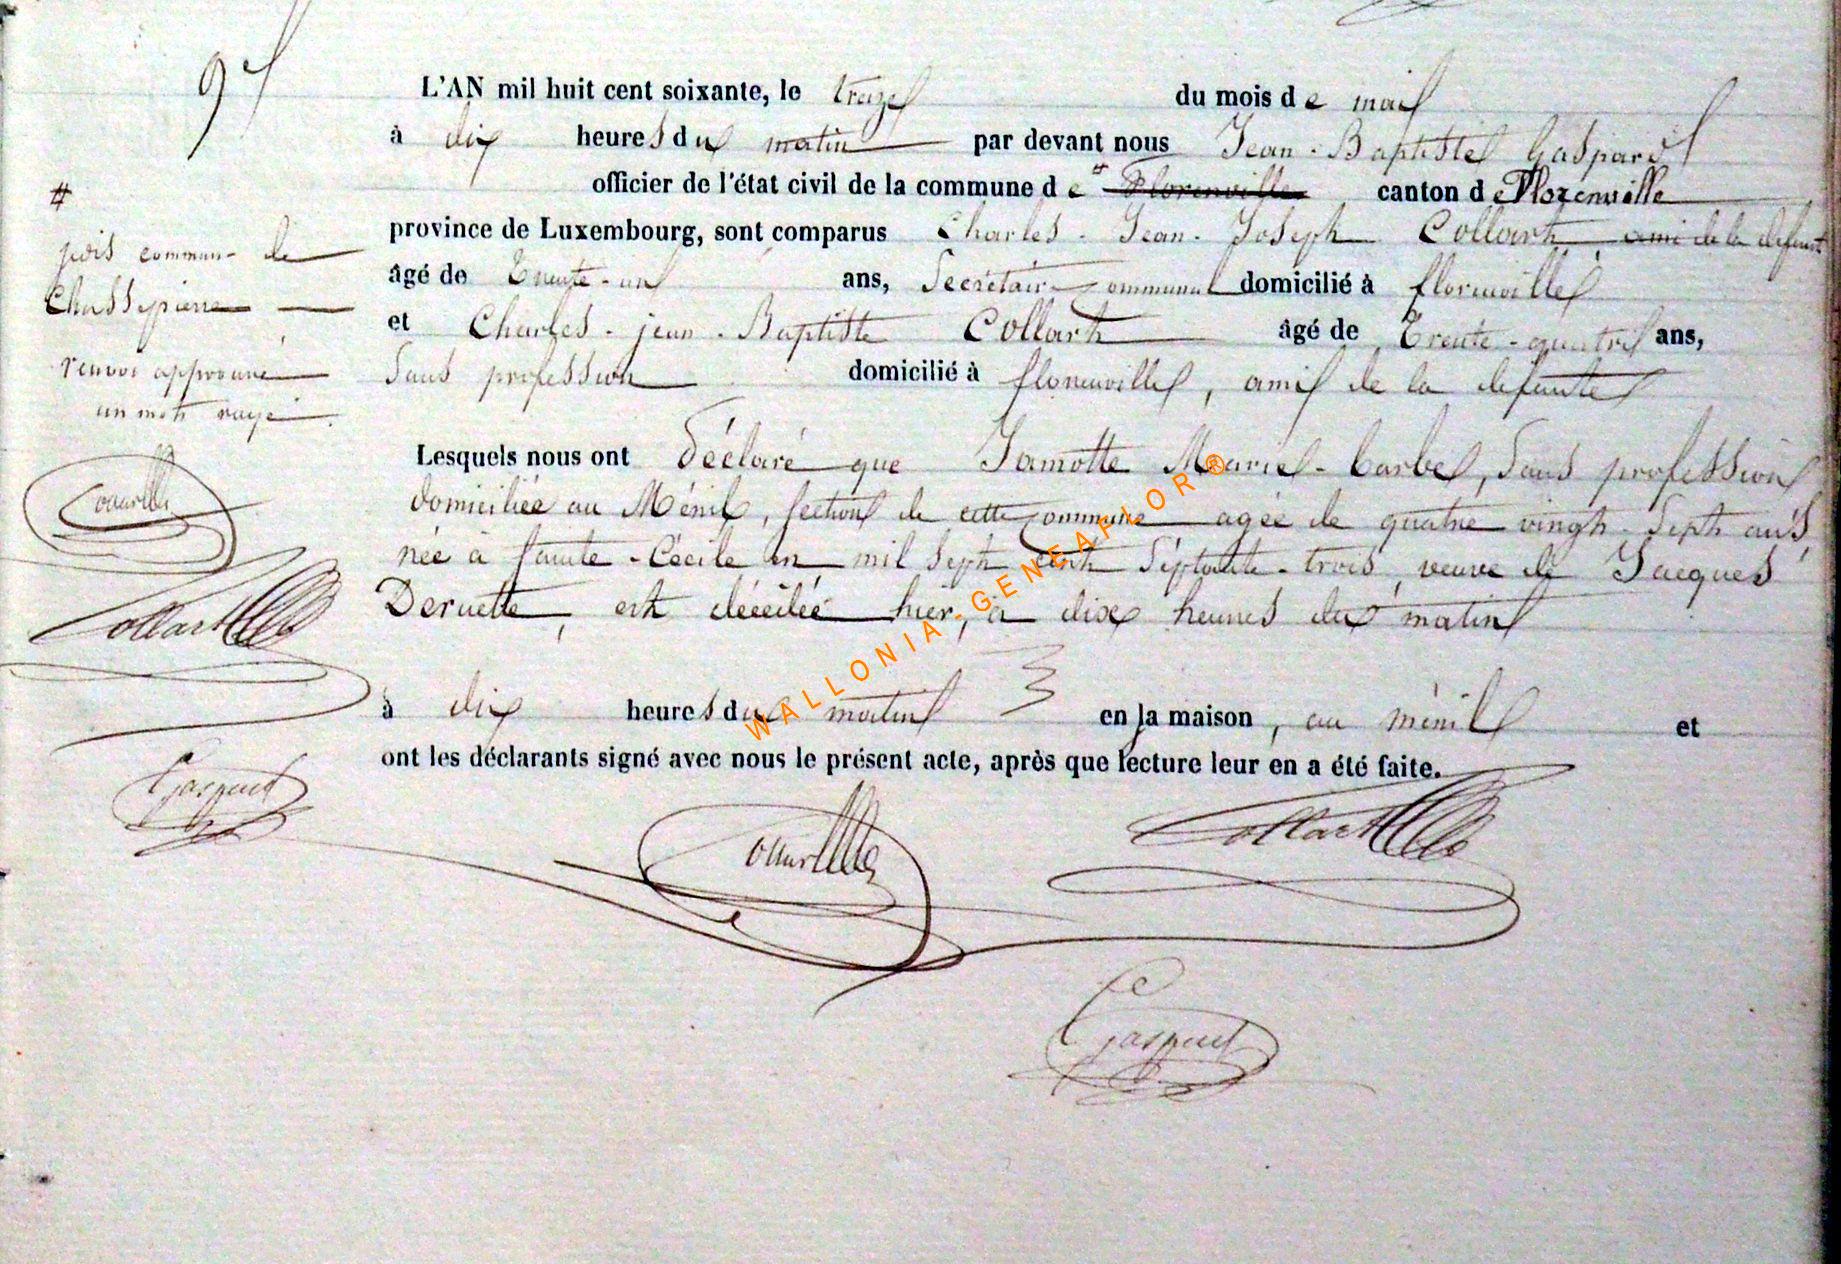 9
L'AN mil huit cent soixante, le treize du mois de mai
à dix heures du matin par devant nous Jean-Baptiste Gaspard
officier de l'état civil de la commune de # Florenville canton de Florenville
province de Luxembourg, sont comparus Charles-Jean-Joseph Collart ami de la defunte
âgé de Trente-un ans, Secrétaire communal domicilié à florenville
et Charles-jean-Baptiste Collart âgé de Trente-quatre ans,
Sans profession domicilié à florenville, ami de la defunte
Lesquels nous ont déclaré que Jamotte Marie-barbe, Sans profession
domiciliée au Ménil, section de cette commune agée de quatre vingt-Sept ans
née à Sainte-Cécile en mil Sept cent Séptante-trois, veuve de Jacques
Deruette, est décédée hier, à dix heures du matin
à dix heures du matin en la maison, au ménil et
ont les déclarants signé avec nous le présent acte, après que lecture leur en a été faite.
#
commune de
Chassepierre
renvoi approuvé
un mot rayé
Collart
Collart
Gaspard
Collart
Collart
Gaspard
WALLONIA-GENEAFLOR®